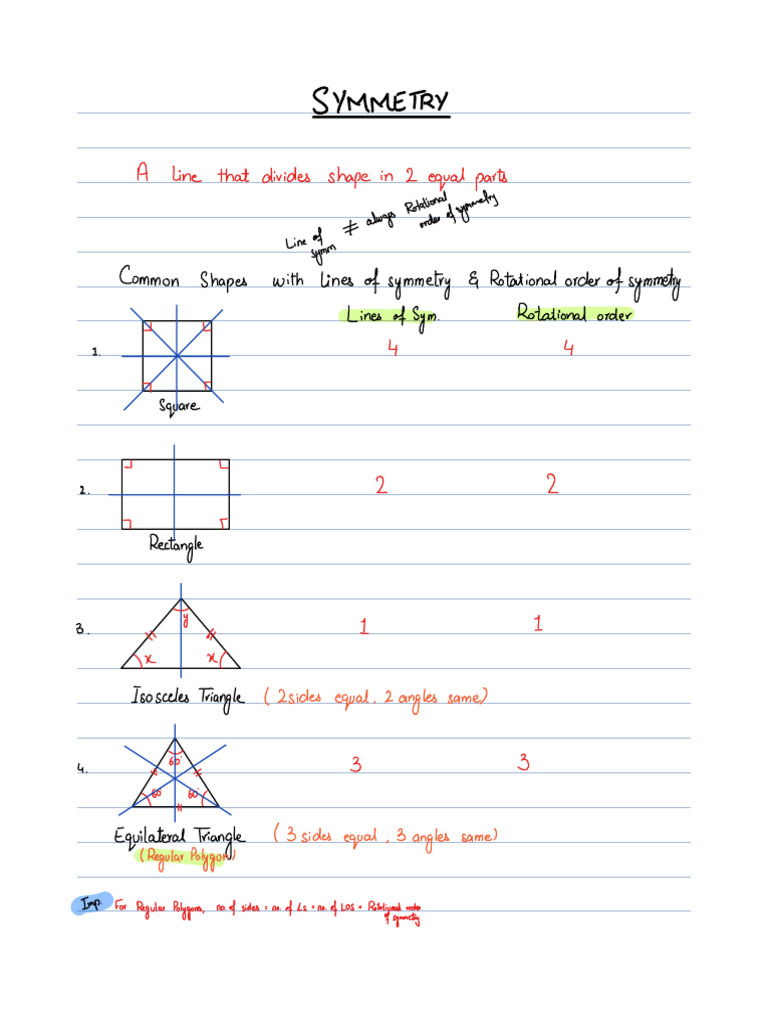 SYMMETRY
A line that divides shape in 2 equal parts
Line of symm ≠ always Rotational order of symmetry
Common Shapes with lines of symmetry & Rotational order of symmetry
Lines of Sym. Rotational order
1. 4 4
Square
2. 2 2
Rectangle
3. y x x 1 1
Isosceles Triangle (2 sides equal, 2 angles same)
4. 60° 60° 60° 3 3
Equilateral Triangle (3 sides equal, 3 angles same)
(Regular Polygon)
Imp. For Regular Polygons, no. of sides = no. of Ls = no. of LOS = Rotational order of symmetry